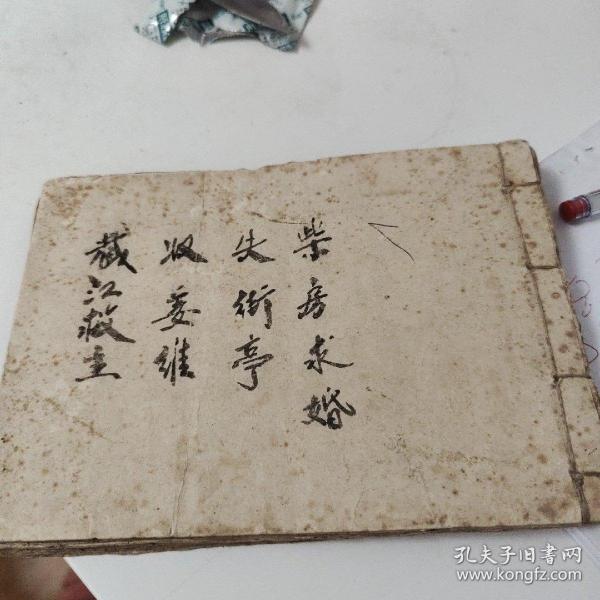 柴房求婚
失街亭
收姜维
截江救主
孔夫子旧书网
www.kongfz.com